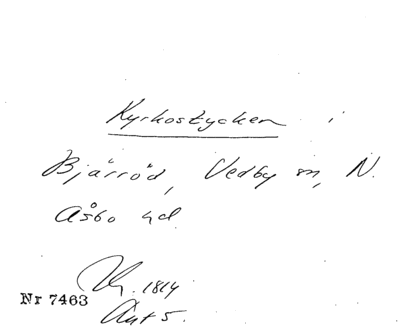 Kyrkostycken i
Bjärröd, Vedby sn, N.
Åsbo hd.
1814
Nr 7463
Ant 5.